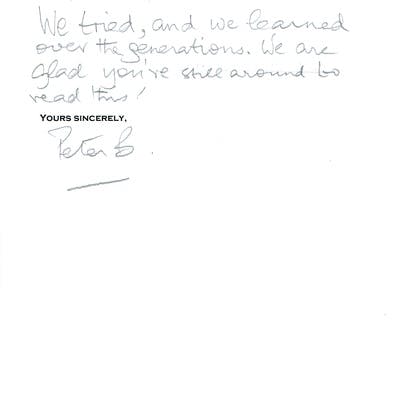 We tried, and we learned
over the generations. We are
glad you're still around to
read this!
YOURS SINCERELY,
Peter B.